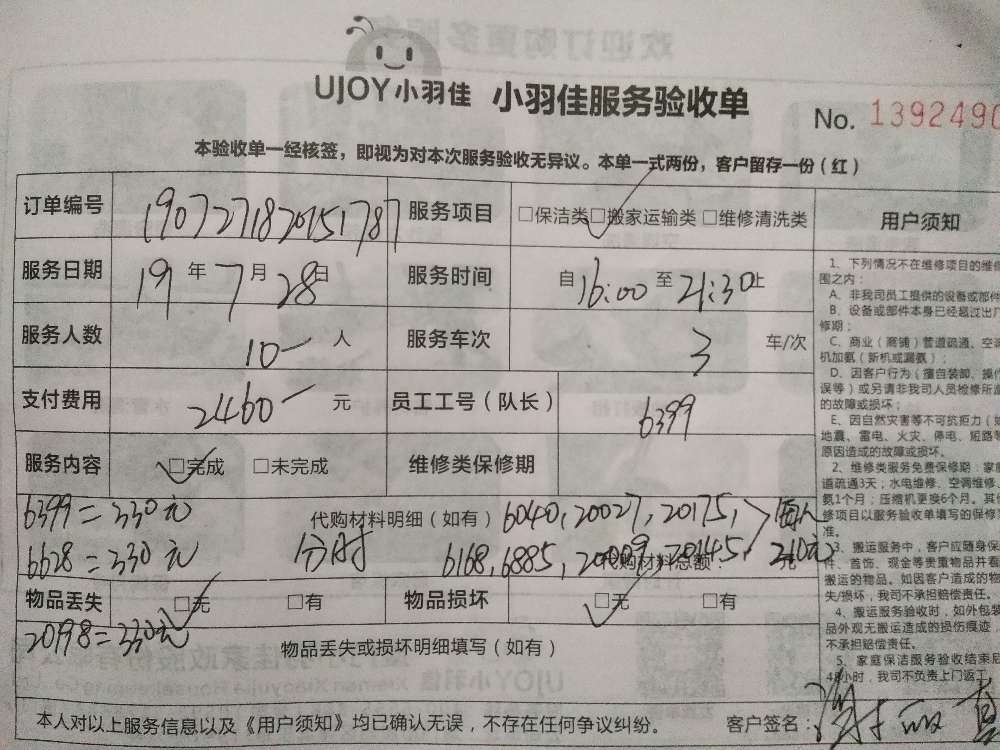 UJOY小羽佳 小羽佳服务验收单
No. 1392490
本验收单一经核签，即视为对本次服务验收无异议。本单一式两份，客户留存一份（红）
订单编号 1907271820151787 服务项目 □保洁类 □搬家运输类 □维修清洗类
服务日期 19年7月28日 服务时间 自16:00至21:30止
服务人数 10人 服务车次 3车/次
支付费用 2460元 员工工号（队长） 6399
服务内容 □完成 □未完成 维修类保修期
6399=330元 代购材料明细（如有） 6040,20027,20175, 每人
6628=330元 6168,6885, 20145, 210元
代购材料总额： 元
物品丢失 □无 □有 物品损坏 □无 □有
20198=330元 物品丢失或损坏明细填写（如有）
本人对以上服务信息以及《用户须知》均已确认无误，不存在任何争议纠纷。 客户签名：
用户须知
1、下列情况不在维修项目的维修
围之内：
A、非我司员工提供的设备或部件
B、设备或部件本身已经超过出厂
修期；
C、商业（商铺）管道疏通、空调
机加氨（新机或漏氨）；
D、因客户行为（擅自装卸、操作
误等）或另请非我司人员检修所造
的故障或损坏；
E、因自然灾害等不可抗拒力（如
地震、雷电、火灾、停电、短路等
原因造成的故障或损坏。
2、维修类服务免费保修期：家庭
道疏通3天；水电维修、空调维修、
氨1个月；压缩机更换6个月。其他
修项目以服务验收单填写的保修
准。
3、搬运服务中，客户应随身保
件、首饰、现金等贵重物品并看
搬运的物品。如因客户造成的物
失/损坏，我司不承担赔偿责任。
4、搬运服务验收时，如外包装
品外观无搬运造成的损伤痕迹，
不承担赔偿责任。
5、家庭保洁服务验收结束后
48小时，我司不负责上门返工